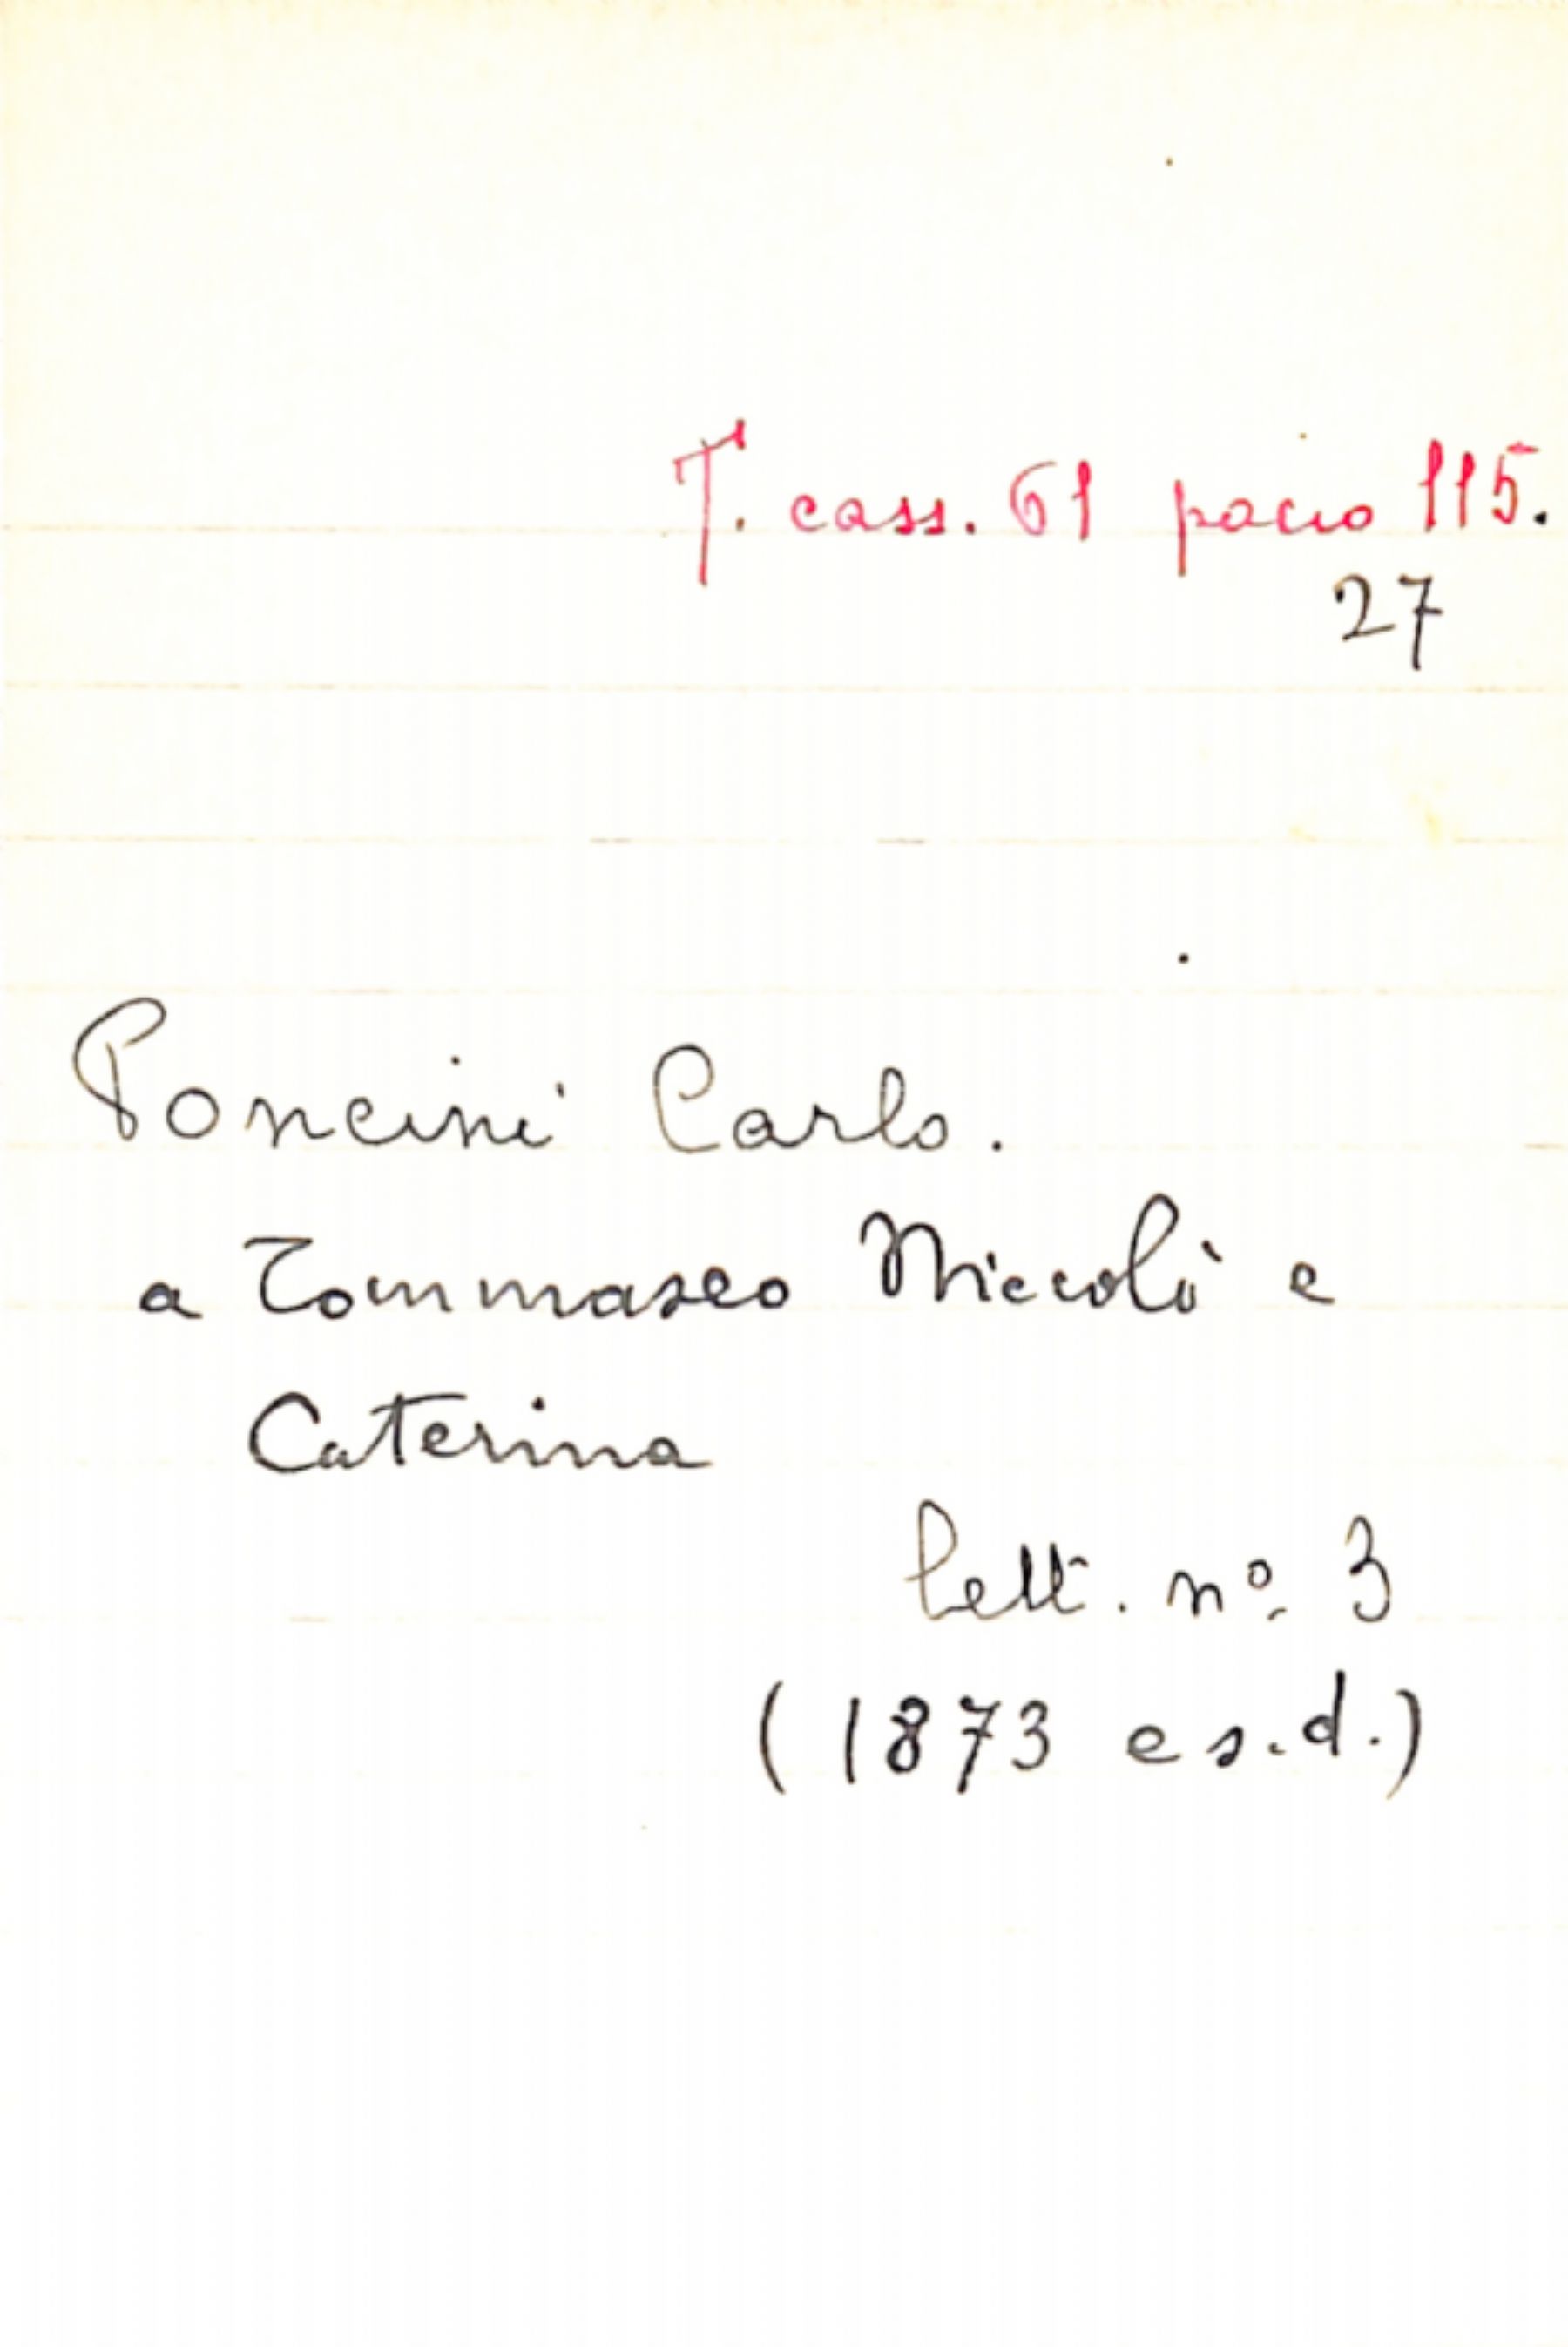 T. cass. 61 pacco 115.
27
Poncini Carlo.
a Tommaseo Niccolò e
Caterina
lett. nº 3
(1873 e s.d.)